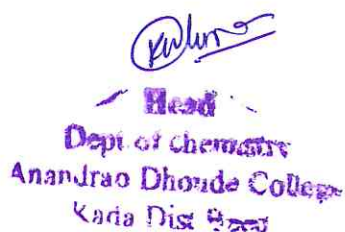 Head
Dept of chemistry
Anandrao Dhonde College
Kada Dist